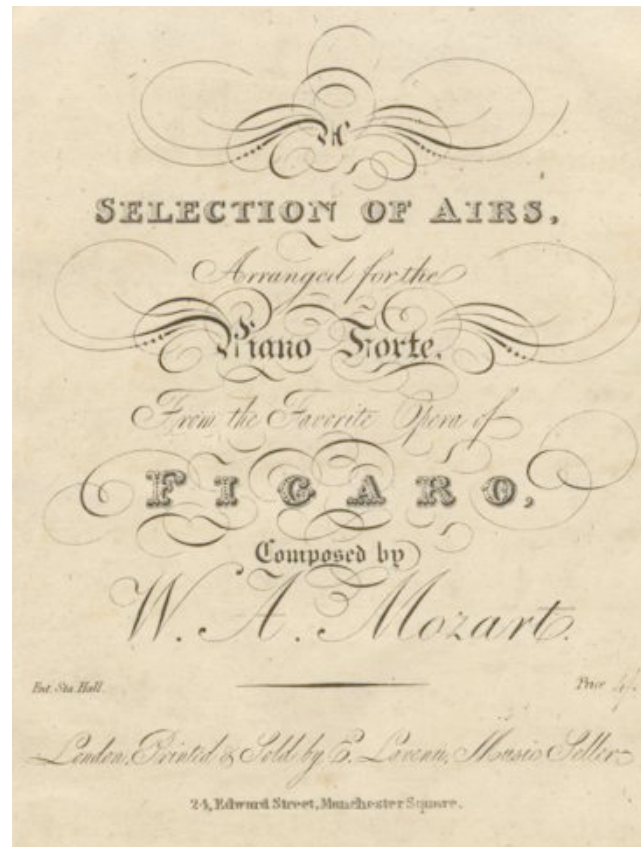 A
SELECTION OF AIRS,
Arranged for the
Piano Forte,
From the Favorite Opera of
FIGARO,
Composed by
W. A. Mozart.
Ent. Sta. Hall.
Price 4/.
London, Printed & Sold by E. Lavenu, Music Seller
24, Edward Street, Manchester Square.